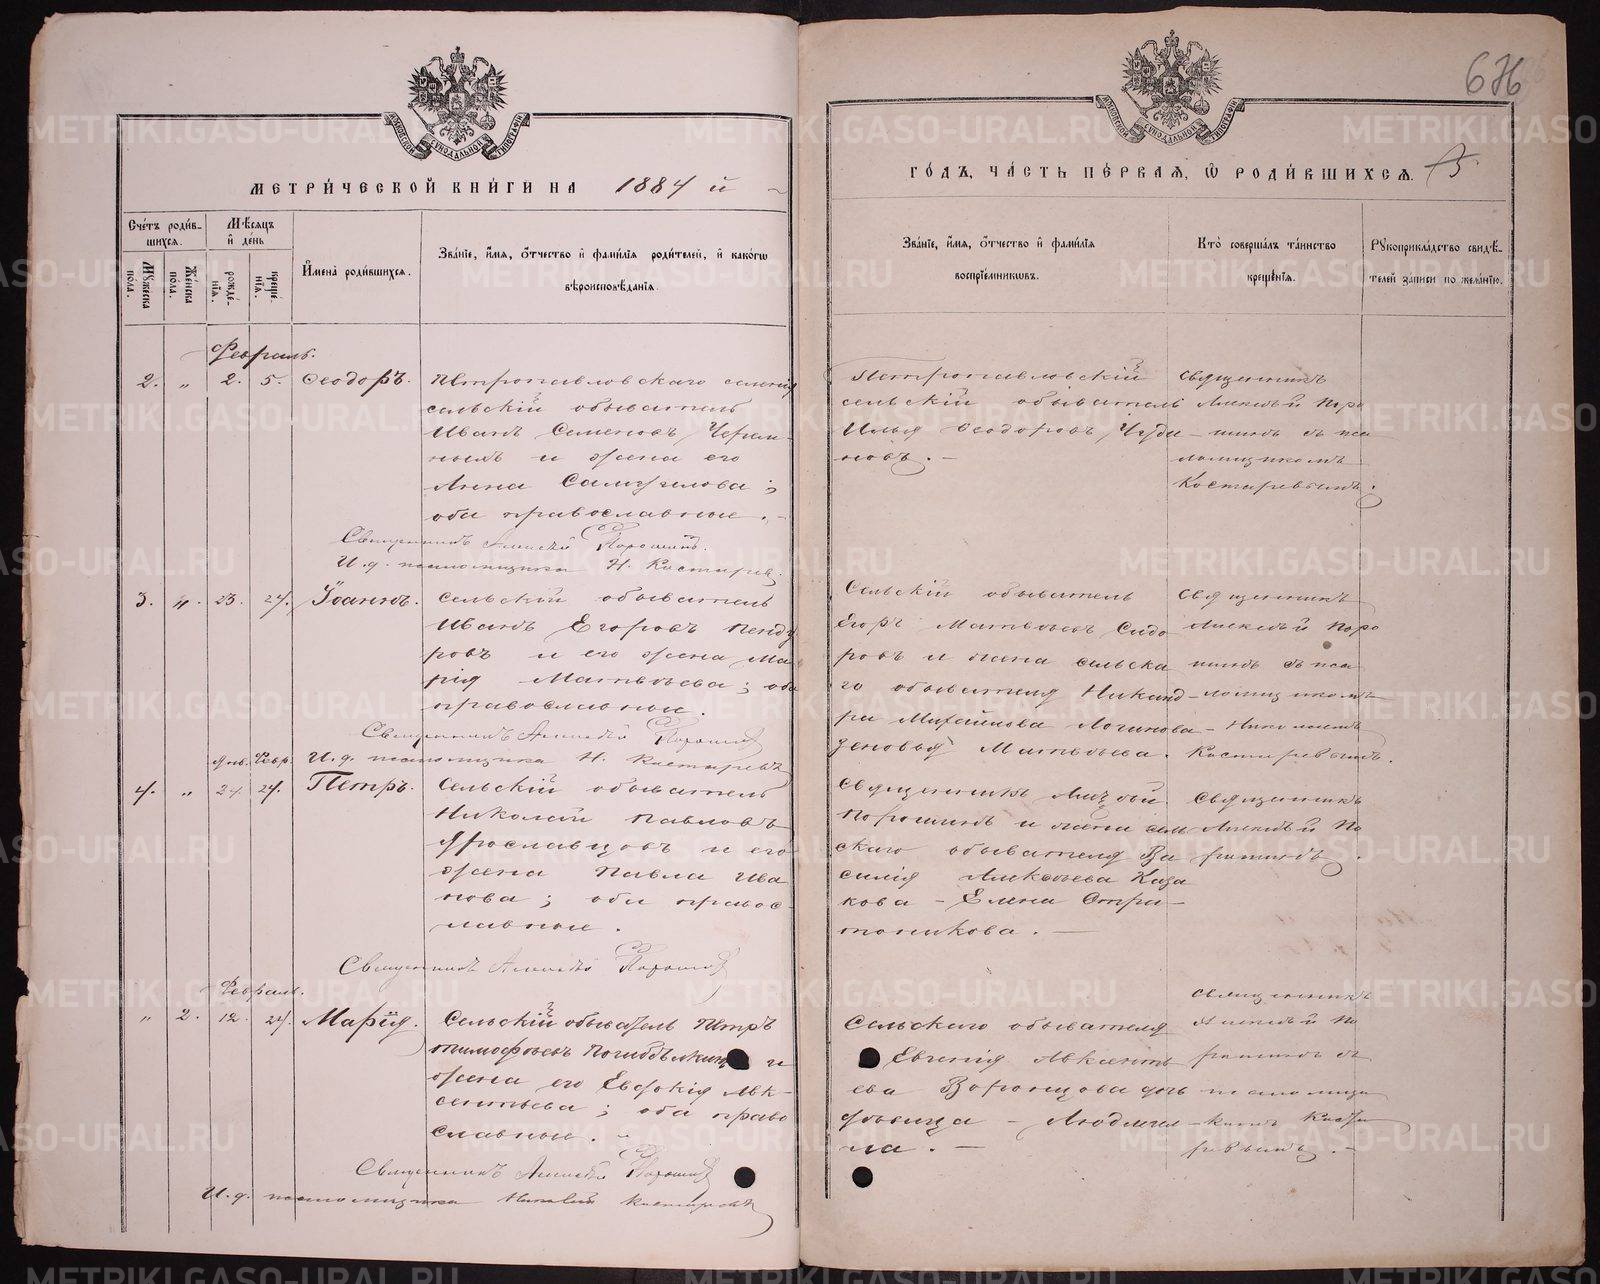 676
МЕТРИЧЕСКОЙ КНИГИ НА 1884 й
Счетъ родившихся.
Мужеска пола.
Женска пола.
Мѣсяцъ и день
рожденія.
крещенія.
Имена родившихся.
Званіе, имя, отчество и фамилія родителей, и какого
вѣроисповѣданія.
Февраль.
2. „ 2. 5. Ѳеодоръ.
Петропавловскаго селенія
сельскій обыватель
Иванъ Семеновъ Черем-
ныхъ и жена его
Анна Самуилова;
оба православные.
Священникъ Алексѣй Порошинъ.
И. д. псаломщика Н. Костаревъ.
3. „ 23. 24. Іоаннъ.
Сельскій обыватель
Иванъ Егоровъ
ровъ и его жена Ма-
рія Матвѣева; оба
православные.
Священникъ Алексѣй Порошинъ
И. д. псаломщика Н. Костаревъ
Янв. Февр.
4. „ 24. Петръ.
Сельскій обыватель
Николай Павловъ
Ярославцовъ и его
жена Павла Ива
нова; оба правос-
лавные.
Священникъ Алексѣй Порошинъ
Февраль.
„ 2. 12. 24. Марія.
Сельскій обыватель Петръ
Тимофѣевъ и
жена его Евдокія Авк-
сентьева; оба право
славные.
Священникъ Алексѣй Порошинъ
И. д. псаломщика Николай Костаревъ
ГОДЪ, ЧАСТЬ ПЕРВАЯ, Ѡ РОДИВШИХСЯ.
Званіе, имя, отчество и фамилія
воспріемниковъ.
Кто совершалъ таинство
крещенія.
Рукоприкладство свидѣ-
телей записи по желанію.
Петропавловскій
сельскій обыватель
Илья Ѳеодоровъ Чуди-
новъ.
Священникъ
Алексѣй Поро
шинъ съ пса
ломщикомъ
Костаревымъ.
Сельскій обыватель
Егоръ Матвѣевъ Сидо
ровъ и жена сельска
го обывателя Никанд-
ра Михайлова Логинова -
Зеновья Матвѣева.
Священникъ
Алексѣй Поро
шинъ съ пса
ломщикомъ
Николаемъ
Костаревымъ.
Священникъ
Порошинъ и жена сель
скаго обывателя Ва
силія Алексѣева Каза
кова - Елена
Священникъ
Алексѣй По
рошинъ.
Сельскаго обывателя
Евгенія Авксенть
ева Воронцова дочь
дѣвица - Людмил-
ла.
Священникъ
Алексѣй По
рошинъ съ
псаломщи
комъ Коста
ревымъ.
METRIKI.GASO-URAL.RU